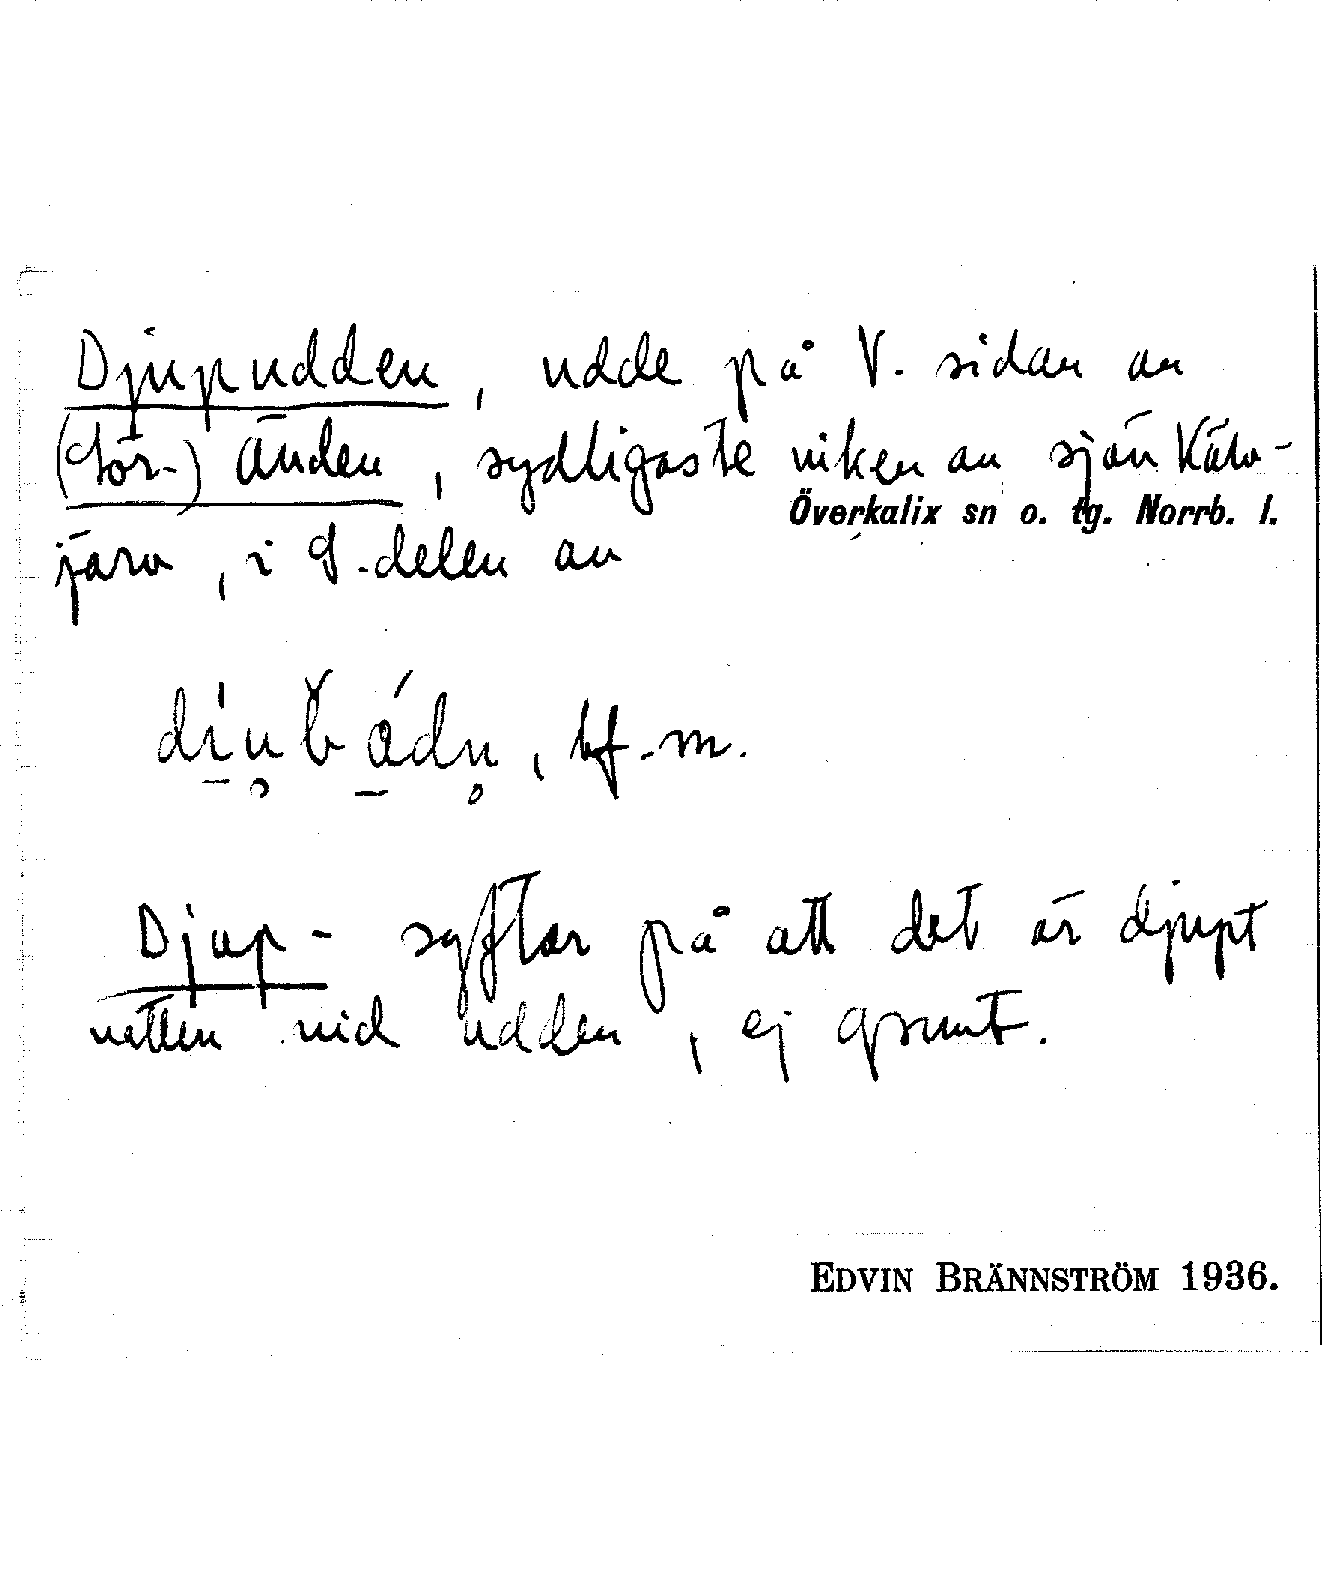 Djupudden, udde på V. sidan av
(Sör-) änden, sydligaste viken av sjön Kälv-
Överkalix sn o. tg. Norrb. l.
järv, i S-delen av
bf. m.
Djup- syftar på att det är djupt
vatten vid udden, ej grunt.
EDVIN BRÄNNSTRÖM 1936.